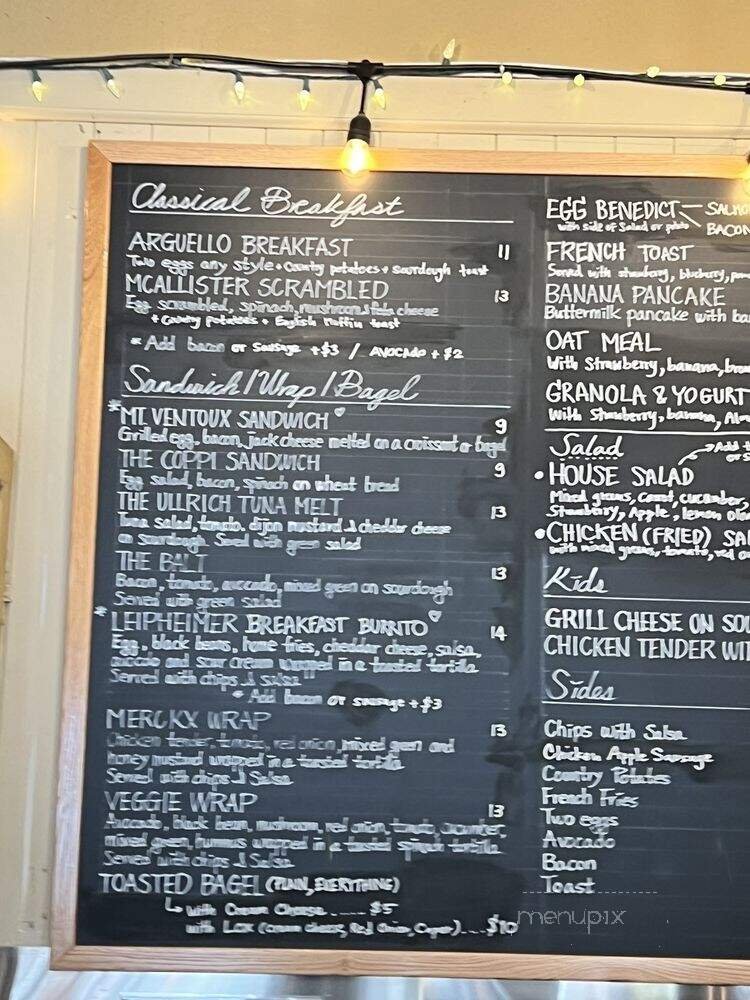 Classical Breakfast
ARGUELLO BREAKFAST 11
Two eggs any style + Country potatoes + sourdough toast
MCALLISTER SCRAMBLED 13
Egg scrambled, spinach, mushroom & feta cheese
+ Country potatoes + English muffin toast
* Add bacon or sausage +$3 / AVOCADO + $2
Sandwich/Wrap/Bagel
*MT VENTOUX SANDWICH 9
Grilled egg, bacon, jack cheese melted on a croissant or bagel
THE COPPI SANDWICH 9
Egg salad, bacon, spinach on wheat bread
THE ULLRICH TUNA MELT 13
Tuna salad, tomato, dijon mustard & cheddar cheese
on sourdough. Served with green salad
THE BALT 13
Bacon, tomato, avocado, mixed green on sourdough
Served with green salad
*LEIPHEIMER BREAKFAST BURRITO 14
Egg, black beans, home fries, cheddar cheese, salsa,
avocado and sour cream wrapped in a toasted tortilla
Served with chips & salsa
* Add bacon or sausage +$3
MERCKX WRAP 13
Chicken tender, tomato, red onion, mixed green and
honey mustard wrapped in a toasted tortilla
Served with chips & Salsa
VEGGIE WRAP 13
Avocado, black bean, mushroom, red onion, tomato, cucumber,
mixed green, hummus wrapped in a toasted spinach tortilla
Served with chips & Salsa
TOASTED BAGEL (PLAIN, EVERYTHING)
with Cream Cheese .... $5
with Lox (cream cheese, Red Onion, Caper)... $10
EGG BENEDICT
BACON
with side of Salad or potato
FRENCH TOAST
Served with strawberry, blueberry,
BANANA PANCAKE
Buttermilk pancake with
OAT MEAL
With Strawberry, banana,
GRANOLA & YOGURT
With Strawberry, banana,
Salad
• HOUSE SALAD
Mixed greens, Carrot, cucumber,
Strawberry, Apple, lemon
• CHICKEN (FRIED)
with mixed greens, tomato, red
Kids
GRILL CHEESE ON
CHICKEN TENDER
Sides
Chips with Salsa
Chicken Apple Sausage
Country Potatoes
French Fries
Two eggs
Avocado
Bacon
Toast
menupix